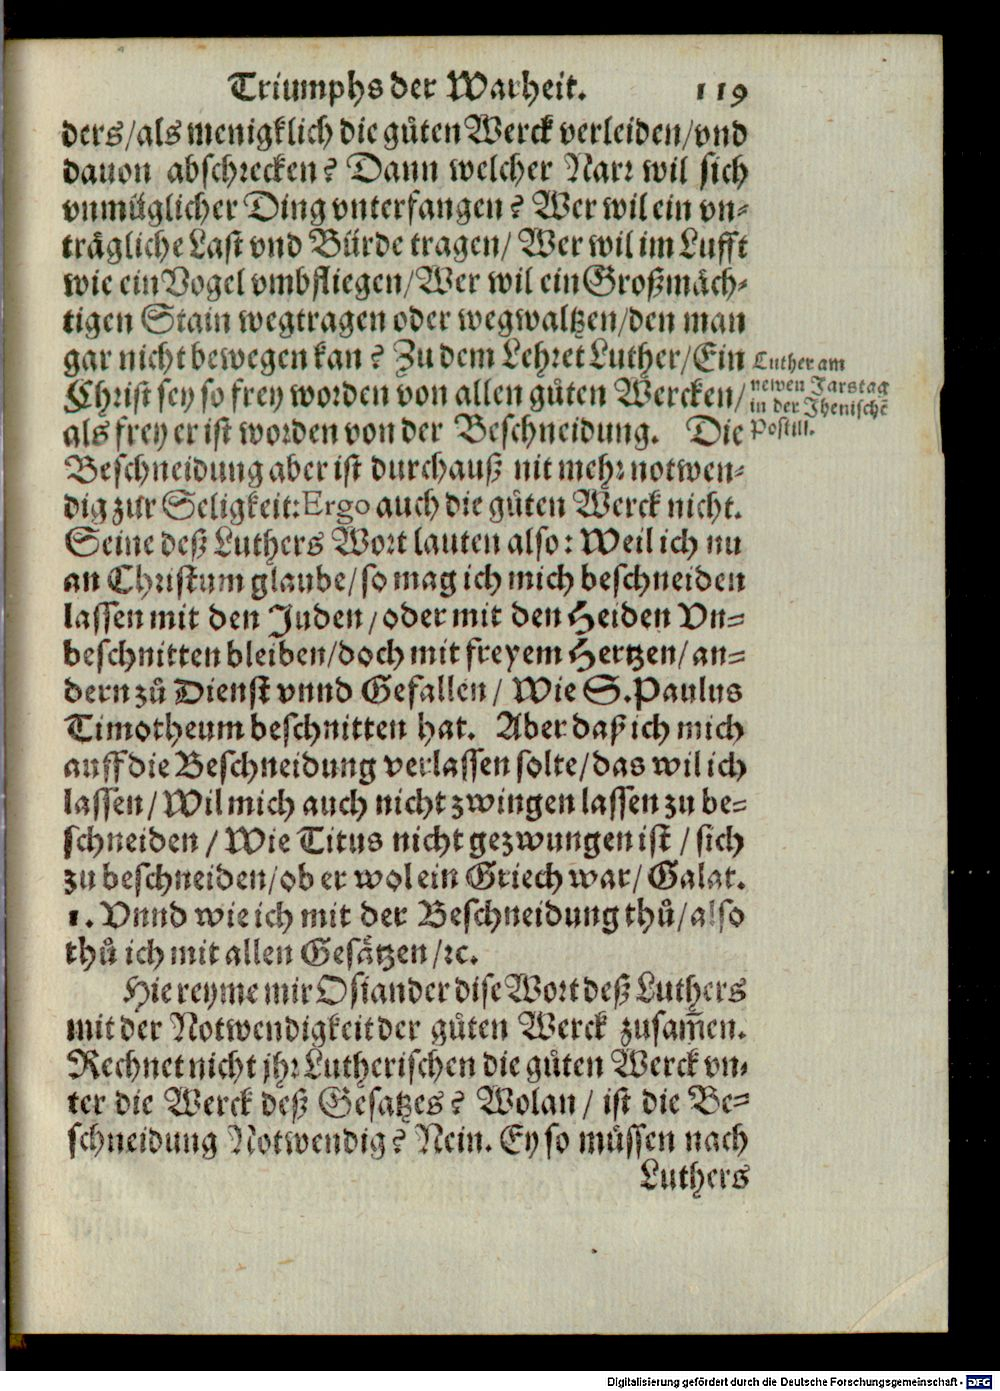 Triumphs der Warheit. 119
ders/als menigklich die gůten Werck verleiden/vnd
dauon abschrecken? Dann welcher Narr wil sich
vnmüglicher Ding vnterfangen? Wer wil ein vn-
trägliche Last vnd Bürde tragen/ Wer wil im Lufft
wie ein Vogel vmbfliegen/Wer wil ein Großmäch-
tigen Stain wegtragen oder wegwaltzen/den man
gar nicht bewegen kan? Zu dem Lehret Luther/Ein
Christ sey so frey worden von allen gůten Wercken/
als frey er ist worden von der Beschneidung. Die
Luther am
newen Jarstag
in der Jhenischē
Postill.
Beschneidung aber ist durchauß nit mehr notwen-
dig zur Seligkeit: Ergo auch die gůten Werck nicht.
Seine deß Luthers Wort lauten also: Weil ich nu
an Christum glaube/so mag ich mich beschneiden
lassen mit den Juden/oder mit den Heiden Vn-
beschnitten bleiben/doch mit freyem Hertzen/an-
dern zů Dienst vnnd Gefallen/ Wie S. Paulus
Timotheum beschnitten hat. Aber daß ich mich
auff die Beschneidung verlassen solte/das wil ich
lassen/Wil mich auch nicht zwingen lassen zu be-
schneiden/Wie Titus nicht gezwungen ist/sich
zu beschneiden/ob er wol ein Griech war/Galat.
1. Vnnd wie ich mit der Beschneidung thů/also
thů ich mit allen Gesätzen/ꝛc.
Hie reyme mir Osiander dise Wort deß Luthers
mit der Notwendigkeit der gůten Werck zusam̄en.
Rechnet nicht jhr Lutherischen die gůten Werck vn-
ter die Werck deß Gesatzes? Wolan/ ist die Be-
schneidung Notwendig? Nein. Ey so müssen nach
Luthers
Digitalisierung gefördert durch die Deutsche Forschungsgemeinschaft - DFG